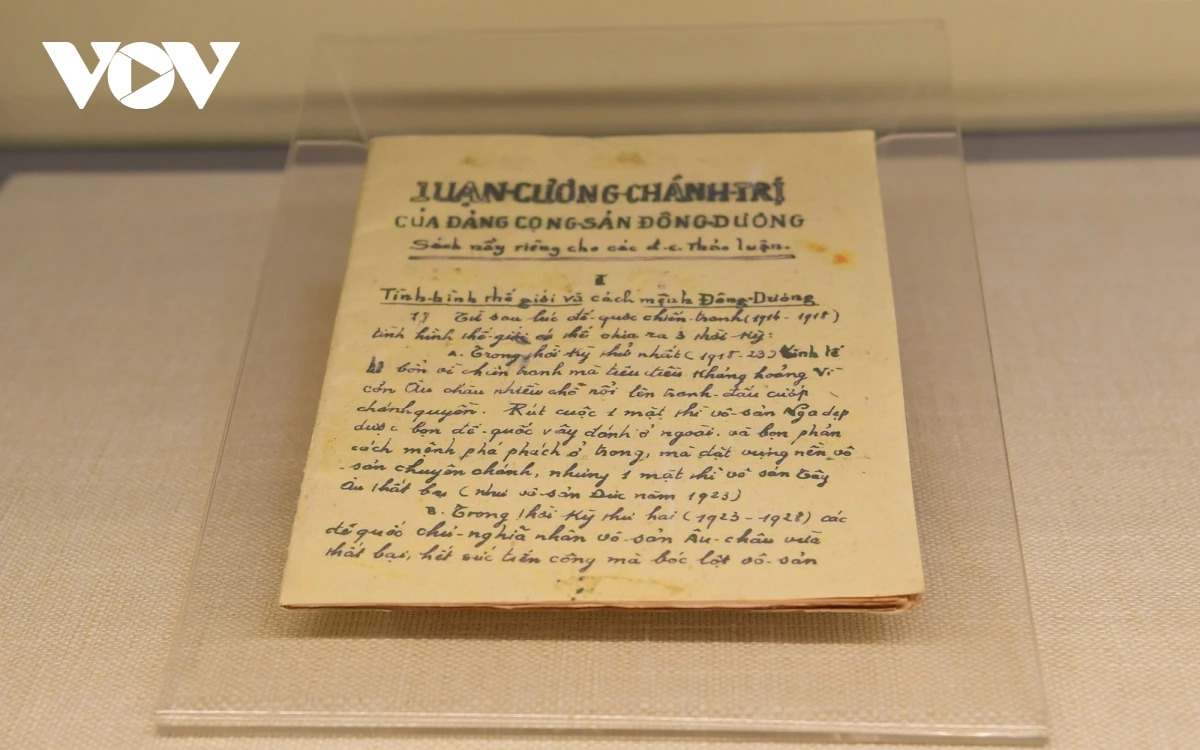 VOV
LUẬN-CƯƠNG-CHÁNH-TRỊ
CỦA ĐẢNG CỘNG-SẢN ĐÔNG-DƯƠNG
Sách nầy riêng cho các đ.c. Thảo luận.
I
Tình-hình thế giới và cách mệnh Đông-Dương
1) Từ sau lúc đế-quốc chiến-tranh (1914 - 1918)
tình hình thế-giới có thể chia ra 3 thời kỳ:
A. Trong thời kỳ thứ nhất (1918-23) Kinh tế
tư bổn vì chiến tranh mà tiêu điều khủng hoảng vì
còn Âu châu nhiều chỗ nổi lên tranh-đấu cướp
chánh quyền. Rút cuộc 1 mặt thì vô-sản Nga dẹp
được bọn đế-quốc vây đánh ở ngoài, và bọn phản
cách mệnh phá phách ở trong, mà đặt vựng nền vô
-sản chuyên chánh, nhưng 1 mặt thì vô sản Tây
Âu thất bại (như vô-sản Đức năm 1923)
B. Trong thời kỳ thứ hai (1923-1928) các
đế quốc chủ-nghĩa nhân vô-sản Âu-châu vừa
thất bại, hết sức tiến công mà bóc lột vô-sản